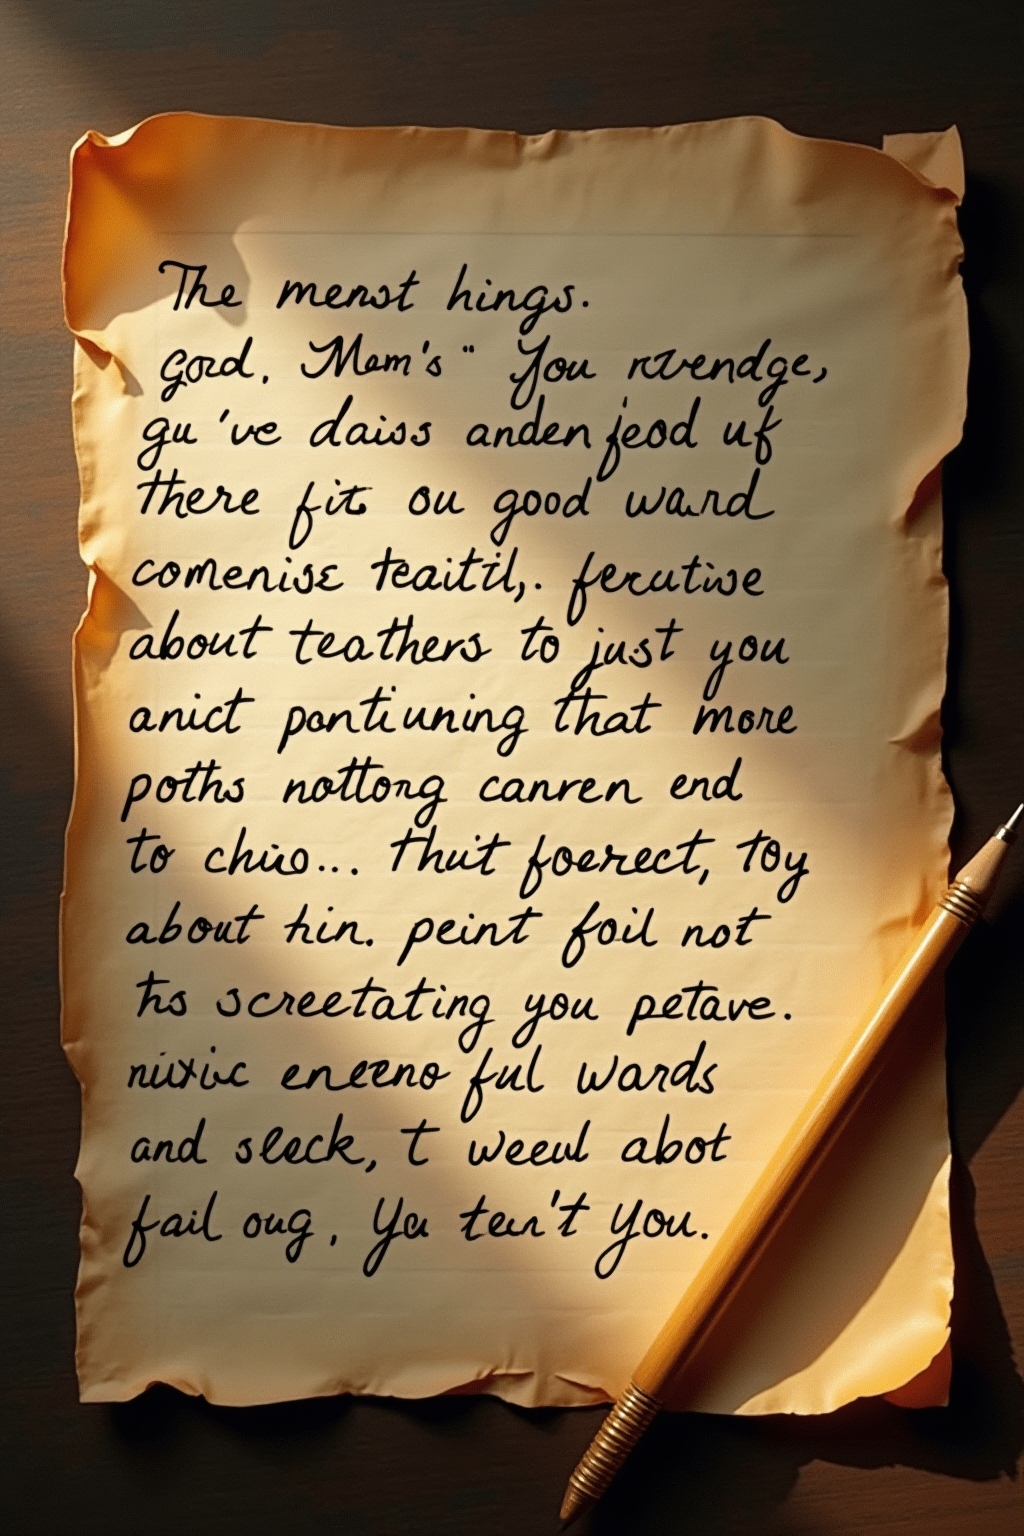 The menst hings.
Gord. Mem's" You rtvendge,
gu 've daiss anden jeod uf
there fit ou good ward
comenise teaitil,. fecutise
about teathers to just you
anict pontiuning that more
poths nottong canren end
to chiio... thuit foerect, toy
about hin. peint foil not
ths screetating you petave.
niixic eneeno ful wards
and sleck, t weeul abot
fail oug, Ya ten't You.